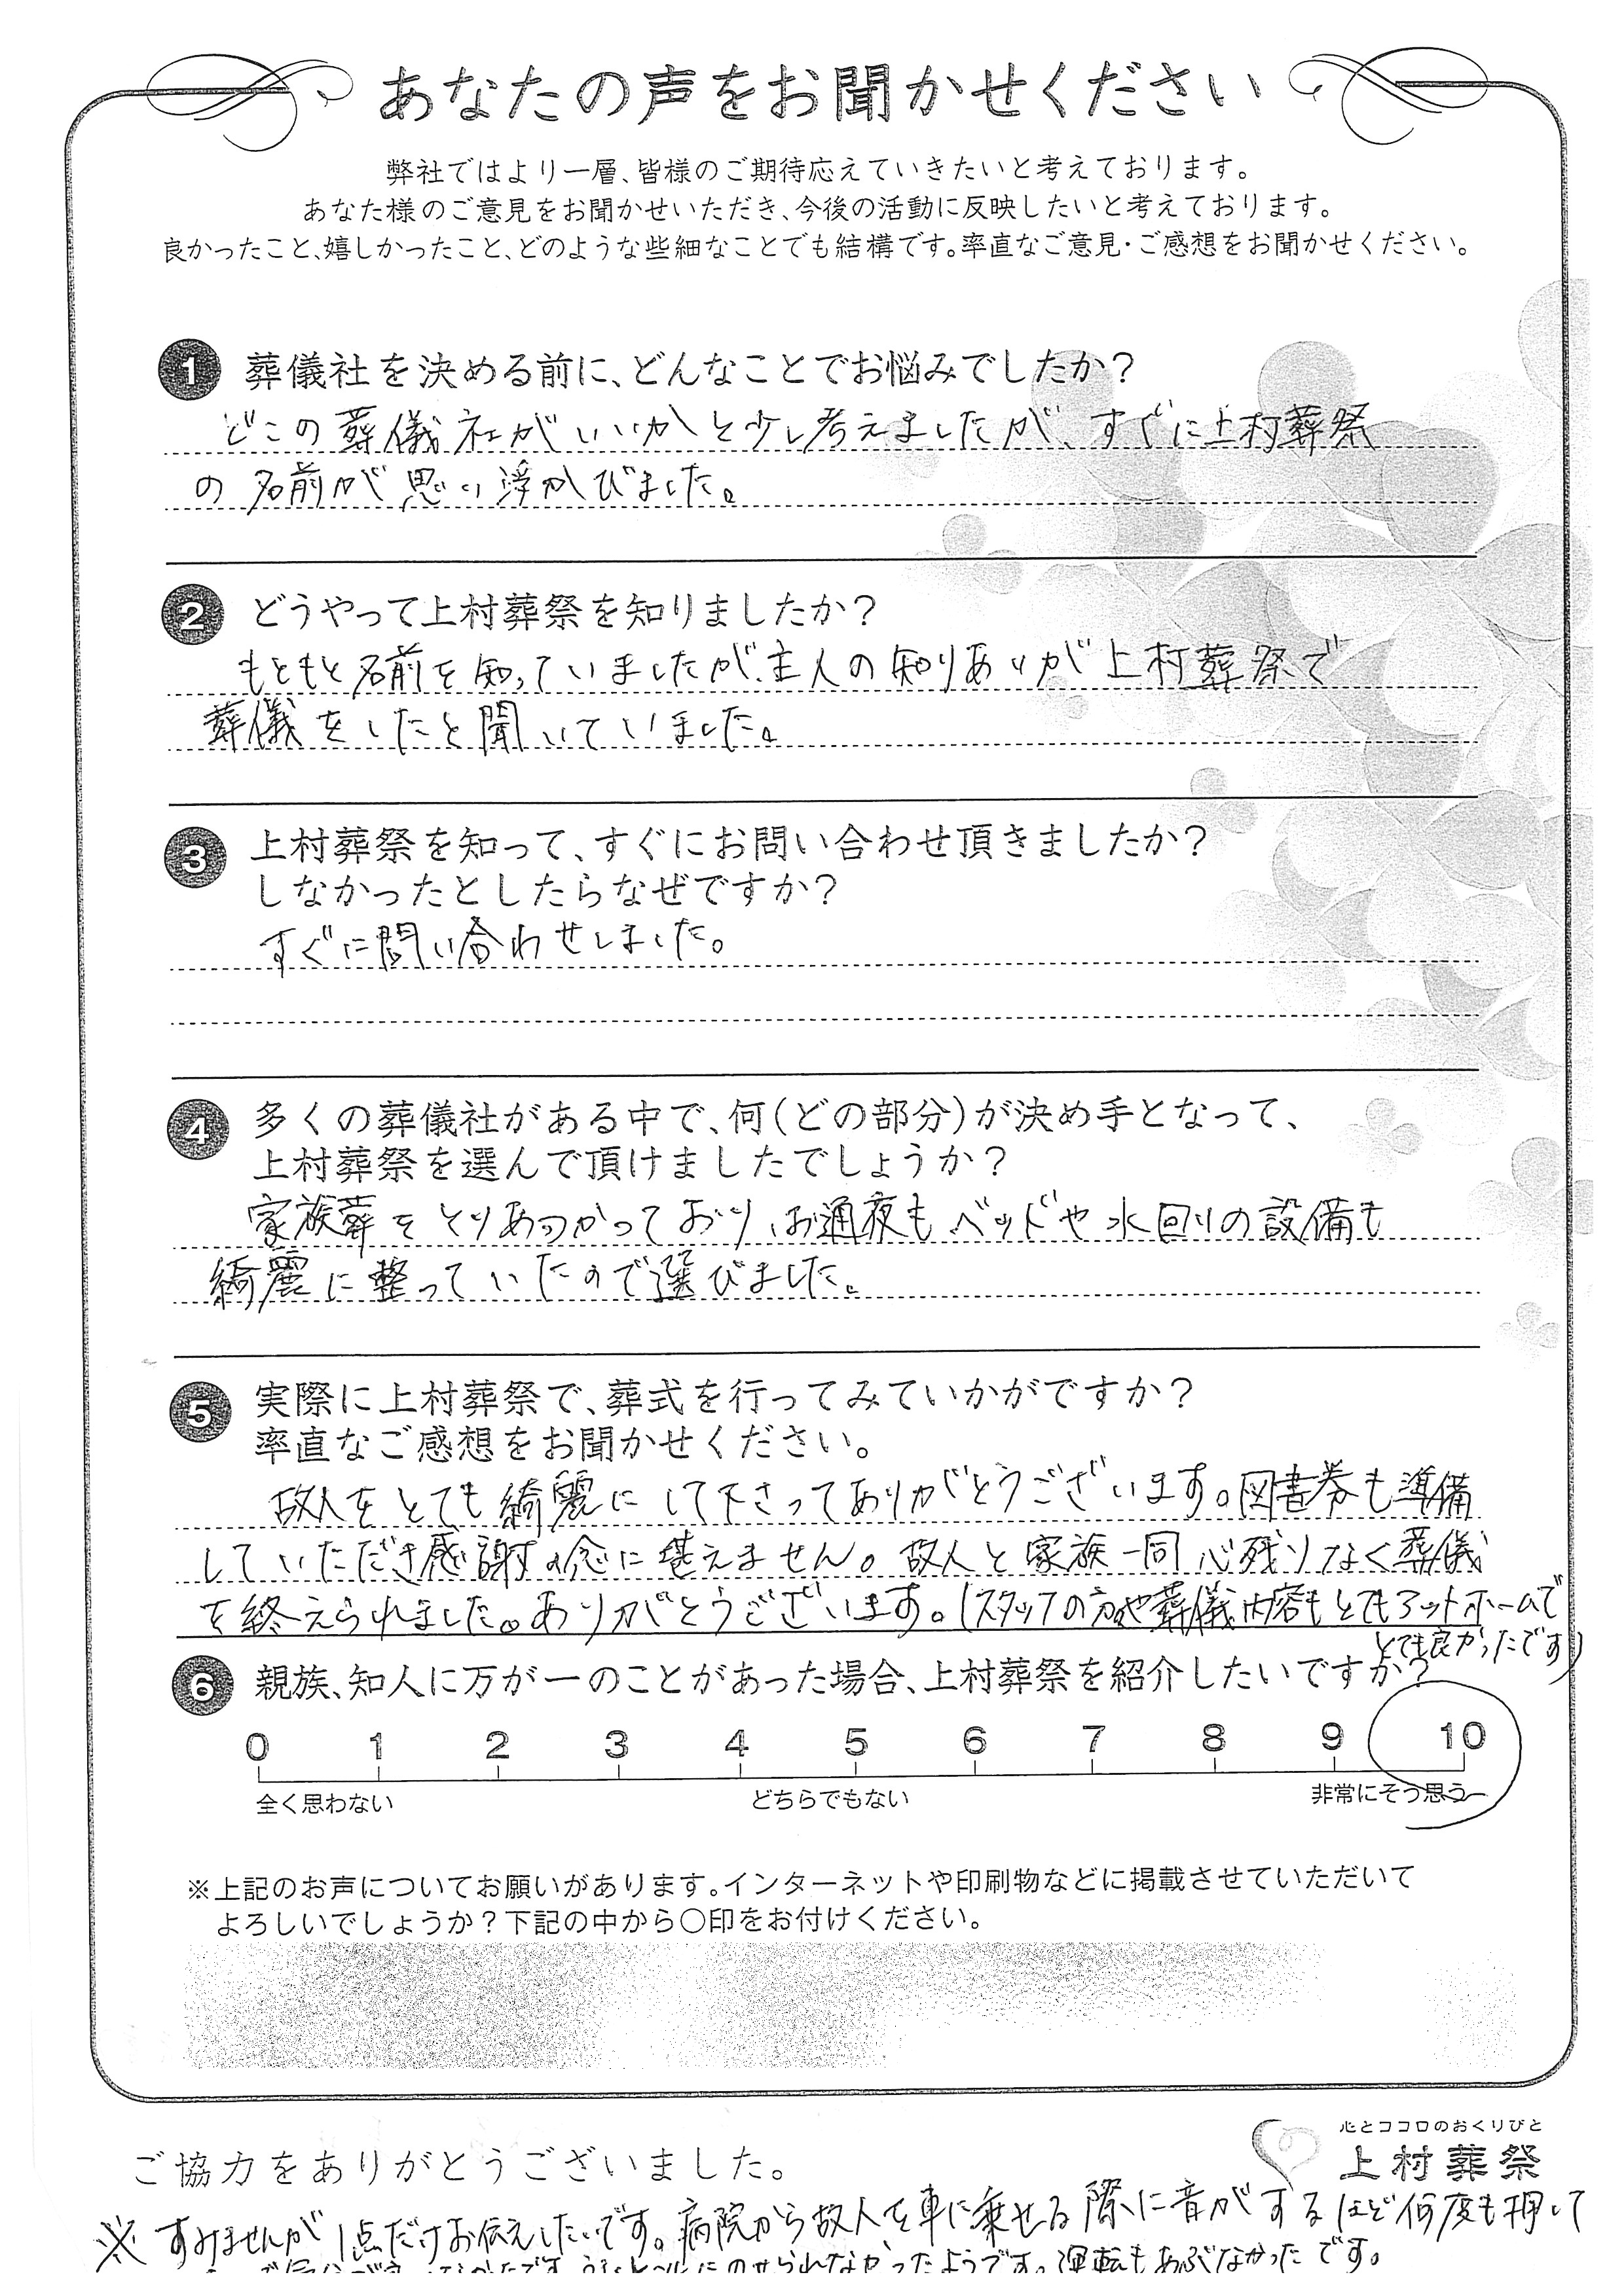 あなたの声をお聞かせください
弊社ではより一層、皆様のご期待応えていきたいと考えております。
あなた様のご意見をお聞かせいただき、今後の活動に反映したいと考えております。
良かったこと、嬉しかったこと、どのような些細なことでも結構です。率直なご意見・ご感想をお聞かせください。
1 葬儀社を決める前に、どんなことでお悩みでしたか？
どこの葬儀社がいいかと少し考えましたが、すぐに上村葬祭
の名前が思い浮かびました。
2 どうやって上村葬祭を知りましたか？
もともと名前を知っていましたが、主人の知りあいが上村葬祭で
葬儀をしたと聞いていました。
3 上村葬祭を知って、すぐにお問い合わせ頂きましたか？
しなかったとしたらなぜですか？
すぐに問い合わせしました。
4 多くの葬儀社がある中で、何（どの部分）が決め手となって、
上村葬祭を選んで頂けましたでしょうか？
家族葬をとりあつかっており、お通夜もベッドや水回りの設備も
綺麗に整っていたので選びました。
5 実際に上村葬祭で、葬式を行ってみていかがですか？
率直なご感想をお聞かせください。
故人をとても綺麗にして下さってありがとうございます。図書券も準備
していただき感謝の念に堪えません。故人と家族一同心残りなく葬儀
を終えられました。ありがとうございます。（スタッフの方や葬儀内容もとてもアットホームで
とても良かったです）
6 親族、知人に万が一のことがあった場合、上村葬祭を紹介したいですか？
0 1 2 3 4 5 6 7 8 9 10
全く思わない どちらでもない 非常にそう思う
※上記のお声についてお願いがあります。インターネットや印刷物などに掲載させていただいて
よろしいでしょうか？下記の中から○印をお付けください。
心とココロのおくりびと
上村葬祭
ご協力をありがとうございました。
※すみませんが1点だけお伝えしたいです。病院から故人を車に乗せる際に音がするほど何度も押して
のせられなかったようです。運転もあぶなかったです。